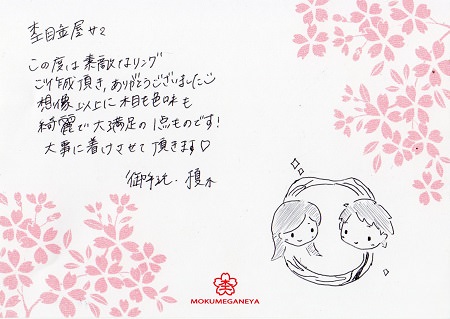 杢目金屋サマ
この度は素敵なリング
ご作成頂き、ありがとうございました
想像以上に木目も色味も
綺麗で大満足の1点ものです！
大事に着けさせて頂きます♡
御手洗・榎木
MOKUMEGANEYA